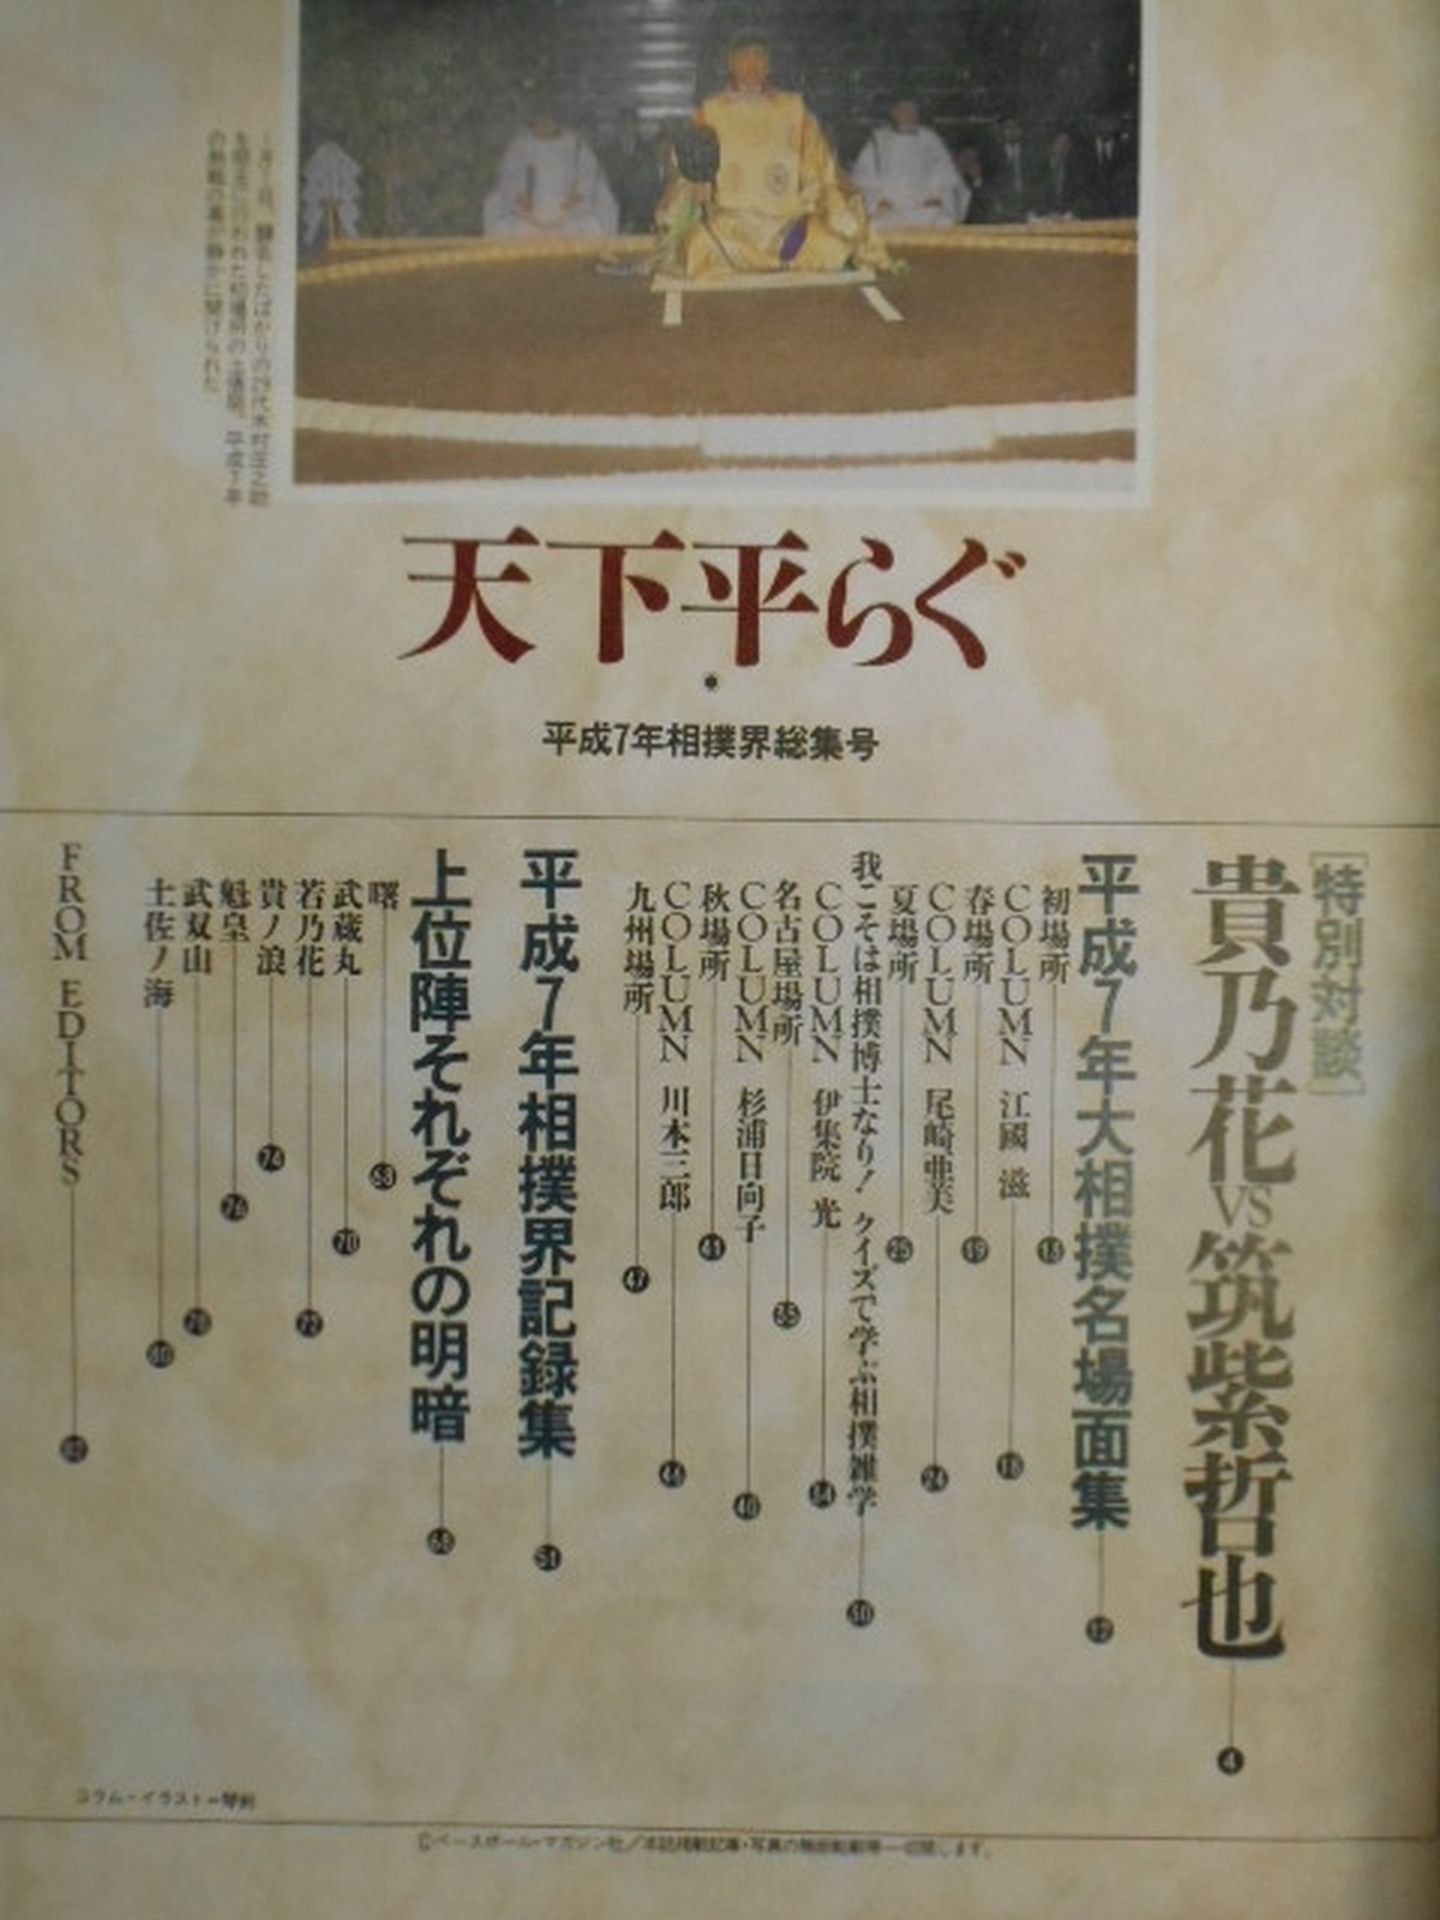 を願主に行われた初場所の土俵祭。平成7年
の熱戦の幕が静かに開けられた
天下平らぐ
平成7年相撲界総集号
[特別対談]
貴乃花VS筑紫哲也 4
平成7年大相撲名場面集 12
初場所 13
COLUMN 江國 滋 18
春場所 19
COLUMN 尾崎亜美 24
夏場所 25
我こそは相撲博士なり! クイズで学ぶ相撲雑学 30
COLUMN 伊集院 光 34
名古屋場所 35
COLUMN 杉浦日向子 40
秋場所 41
COLUMN 川本三郎 46
九州場所 47
平成7年相撲界記録集 51
上位陣それぞれの明暗 68
曙 68
武蔵丸 70
若乃花 72
貴ノ浪 74
魁皇 76
武双山 78
土佐ノ海 80
FROM EDITORS 82
コラム・イラスト=
©ベースボール・マガジン社/本誌掲載記事・写真の無断転載等一切禁じます。